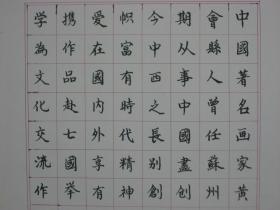 中國著名画家黄
會縣人曾任蘇州
期从事中國畫创
今中西之長别創
帜富有時代精神
爱在國内外享有
携作品赴七國举
学為文化交流作